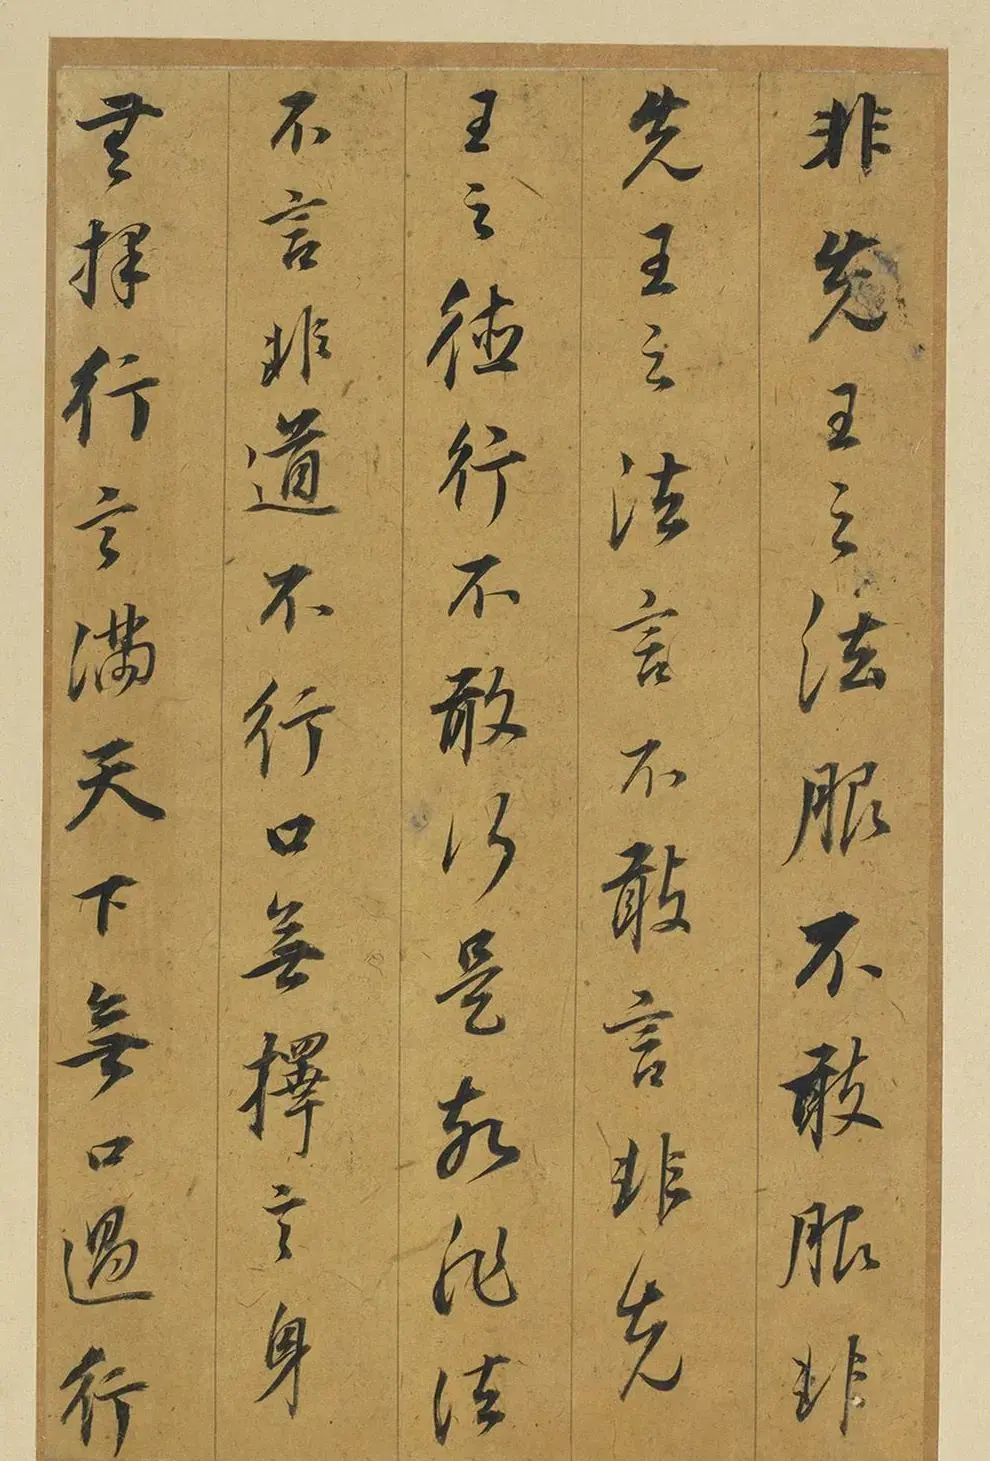 非先王之法服不敢服非
先王之法言不敢言非先
王之德行不敢行是故非法
不言非道不行口無擇言身
無擇行言滿天下無口過行